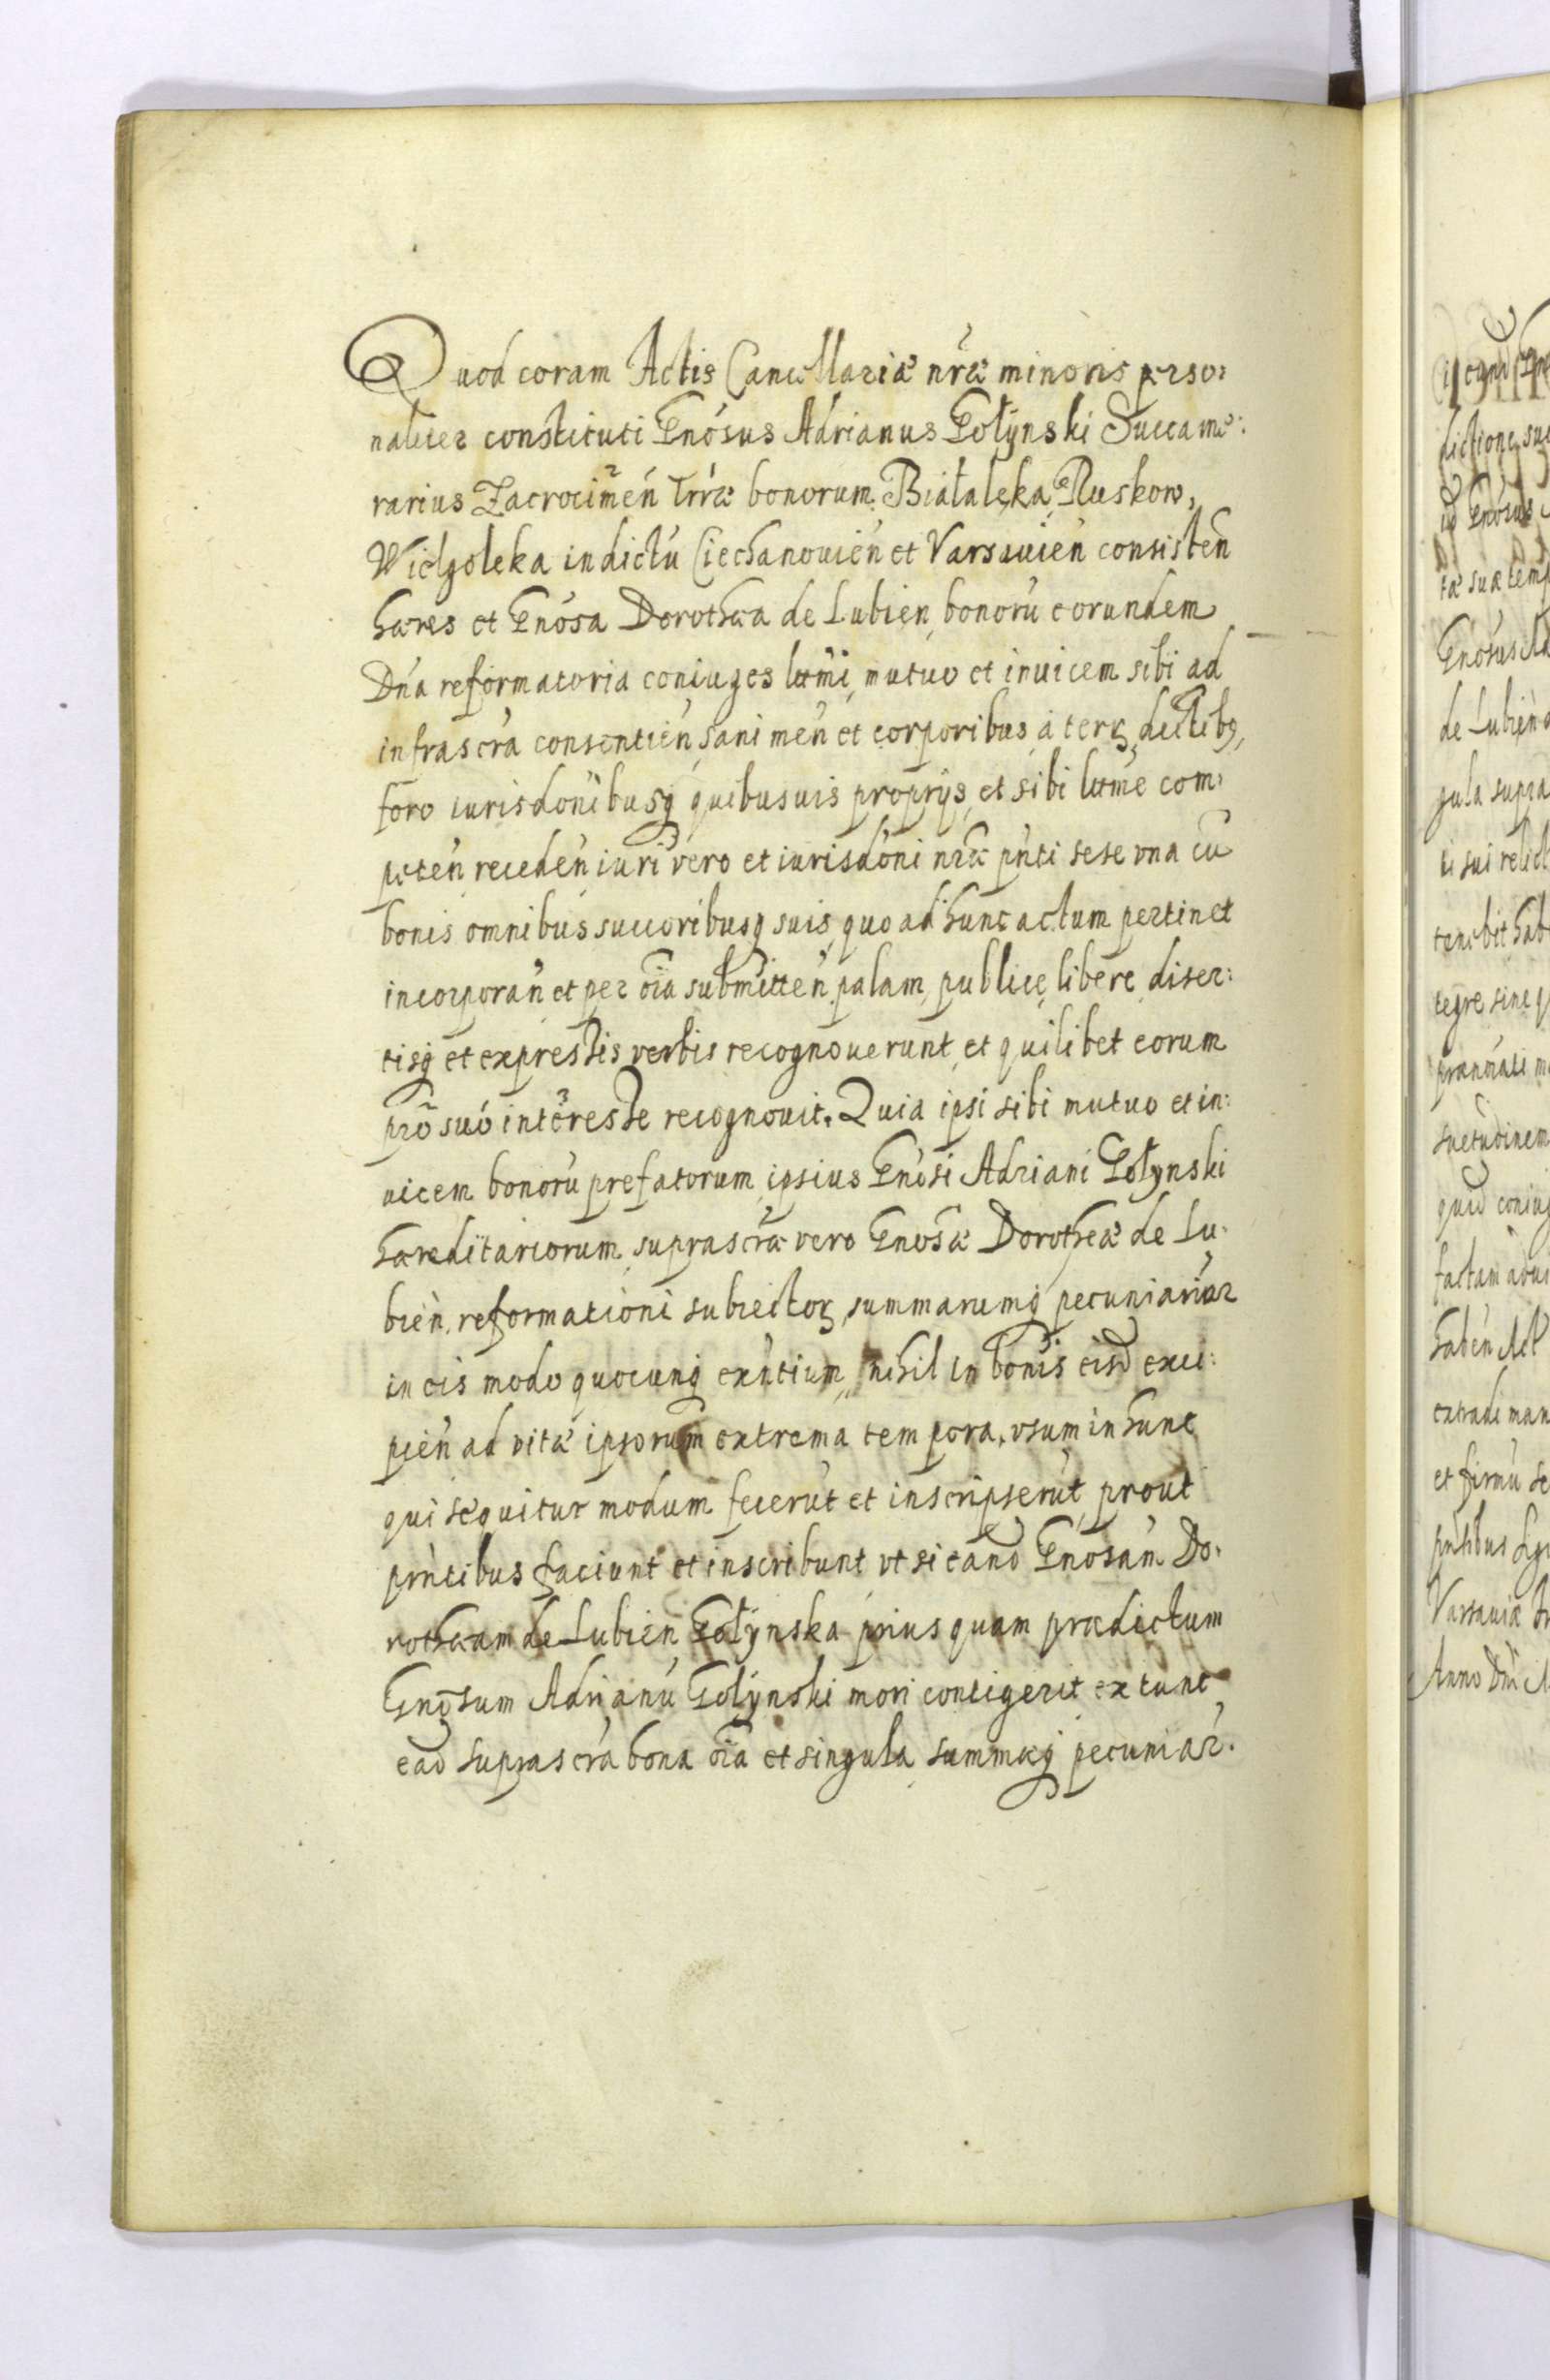 Quod coram Actis Cancellariæ nræ minoris perso:
naliter constituti Gnosus Adrianus Gołynski Succame:
rarius Zacrocimen Trræ bonorum Białaleka, Ruskow,
Wielgoleka in dictu Ciechanouien et Varsauien consisten
hæres et Gnosa Dorothæa de Lubien, bonorú eorundem
Dna reformatoria coniuges lttmi, mutuo et inuicem sibi ad
infrascra consentien, sani men et corporibus, á terg dictibq,
foro iurisdonibusq quibusuis proprijs, et sibi lttme com:
peten receden iuri vero et iurisdoni nræ pnti sese vna cū
bonis omnibus succoribusq suis, quo ad hunc actum pertinet
incorporan et per oia submitten palam, publice, libere, diser:
tisq et expressis verbis recognouerunt, et quilibet eorum
pro suo interesse recognouit. Quia ipsi sibi mutuo et in:
uicem bonorú prefatorum ipsius Gnosi Adriani Gołynski
hæreditariorum, suprascræ vero Gnosæ Dorotheæ de Lu:
bien, reformationi subiector, summarumq pecuniariar
in eis modo quocunq exntium, nihil in bonis eisd exci:
pien ad vitæ ipsorum extrema tempora, vsum in hunc
qui sequitur modum fecerūt et inscripserūt, prout
pntibus faciunt et inscribunt vt si eand Gnosam Do:
rothæam de Lubien Gołynska prius quam prædictum
Gnosum Adrianú Gołynski mori contigerit extunc
ead suprascra bona oia et singula summæq pecuniar:
Gnosus
de Lubien
gula supra
ti sui relict
tenebit hab